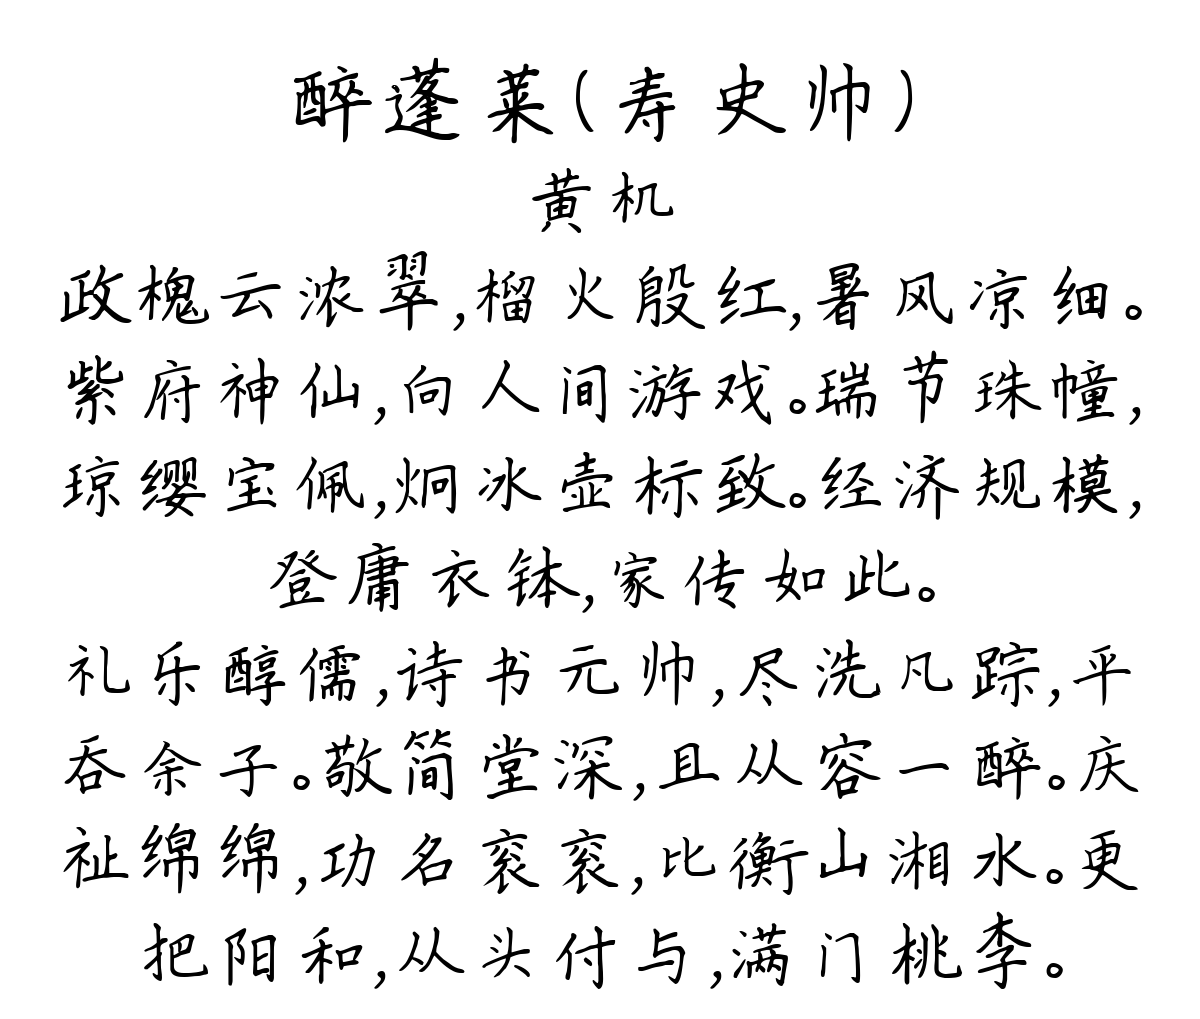 醉蓬莱(寿史帅)
黄机
政槐云浓翠,榴火殷红,暑风凉细。
紫府神仙,向人间游戏。瑞节珠幢,
琼缨宝佩,炯冰壶标致。经济规模,
登庸衣钵,家传如此。
礼乐醇儒,诗书元帅,尽洗凡踪,平
吞余子。敬简堂深,且从容一醉。庆
祉绵绵,功名衮衮,比衡山湘水。更
把阳和,从头付与,满门桃李。